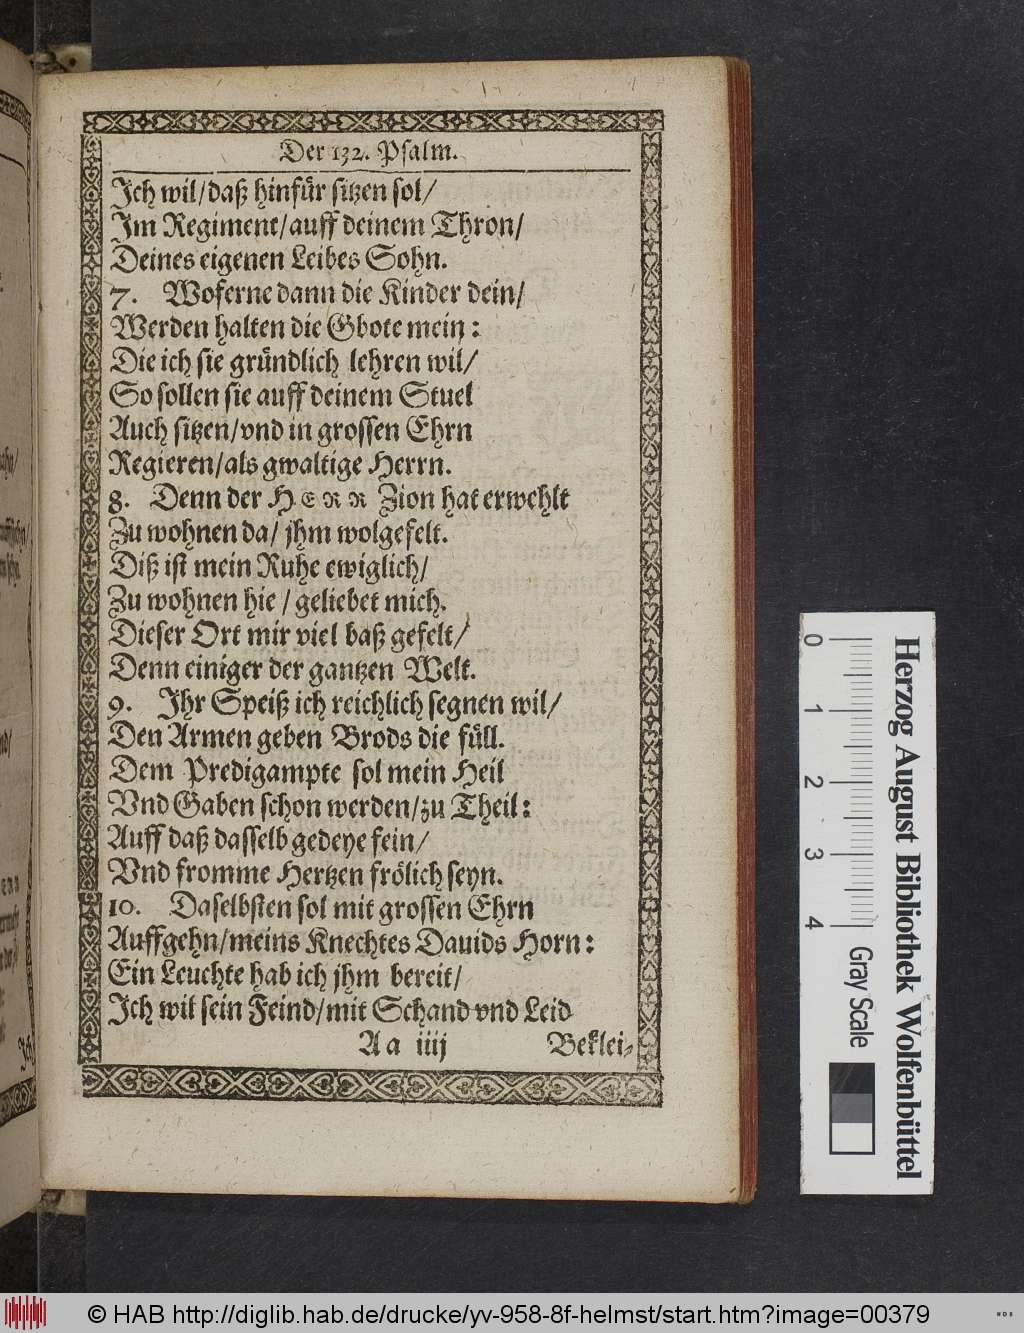 Der 132. Psalm.
Ich wil/daß hinfür sitzen sol/
Im Regiment/auff deinem Thron/
Deines eigenen Leibes Sohn.
7. Woferne dann die Kinder dein/
Werden halten die Gbote mein:
Die ich sie gründlich lehren wil/
So sollen sie auff deinem Stuel
Auch sitzen/vnd in grossen Ehrn
Regieren/als gwaltige Herrn.
8. Denn der HERR Zion hat erwehlt
Zu wohnen da/ jhm wolgefelt.
Diß ist mein Ruhe ewiglich/
Zu wohnen hie / geliebet mich.
Dieser Ort mir viel baß gefelt/
Denn einiger der gantzen Welt.
9. Ihr Speiß ich reichlich segnen wil/
Den Armen geben Brods die füll.
Dem Predigampte sol mein Heil
Vnd Gaben schon werden/zu Theil:
Auff daß dasselb gedeye fein/
Vnd fromme Hertzen frölich seyn.
10. Daselbsten sol mit grossen Ehrn
Auffgehn/meins Knechtes Dauids Horn:
Ein Leuchte hab ich jhm bereit/
Ich wil sein Feind/mit Schand vnd Leid
Aa iiij Beklei-
0 1 2 3 4 Gray Scale
Herzog August Bibliothek Wolfenbüttel
© HAB http://diglib.hab.de/drucke/yv-958-8f-helmst/start.htm?image=00379